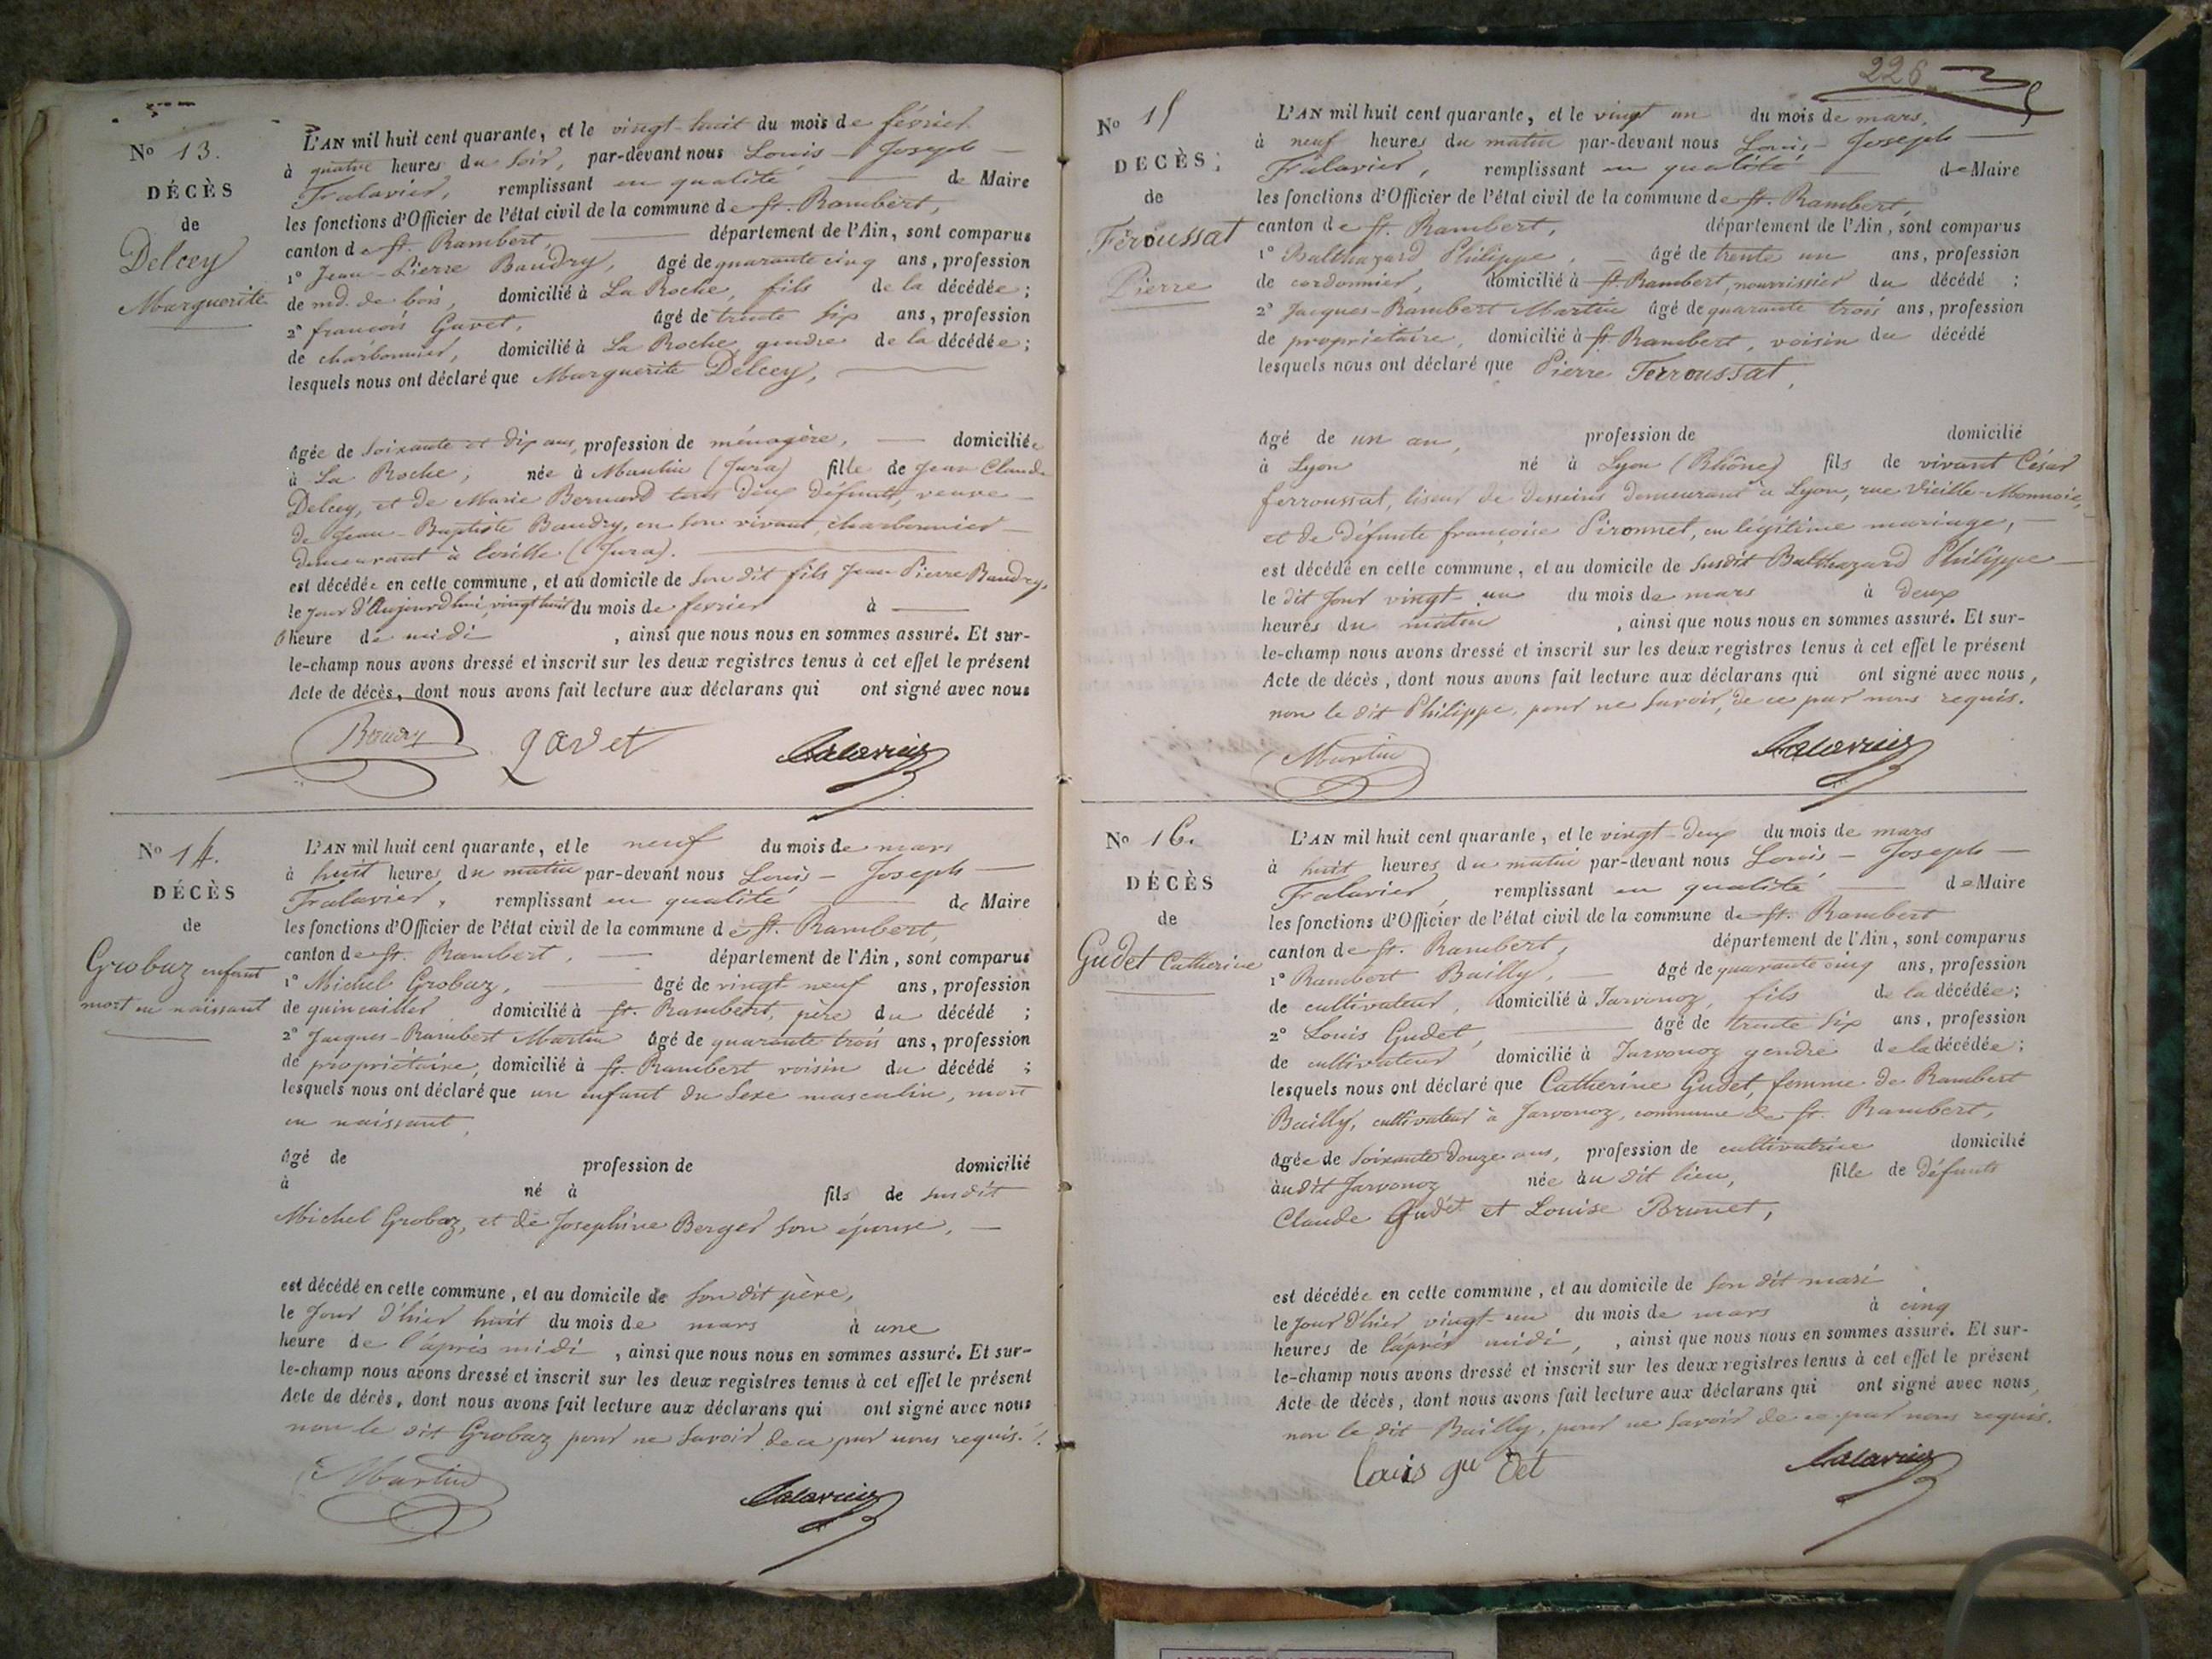 N° 13.
DÉCÈS
de
Delcey
Marguerite
L'AN mil huit cent quarante, et le vingt-huit du mois de février
à quatre heures du soir, par-devant nous Louis-Joseph
Tralavier, remplissant en qualité de Maire
les fonctions d'Officier de l'état civil de la commune de St. Rambert,
canton de St. Rambert, département de l'Ain, sont comparus
1° Jean-Pierre Baudry, âgé de quarante cinq ans, profession
de md. de bois, domicilié à La Roche, fils de la décédée;
2° françois Gavet, âgé de trente six ans, profession
de charbonnier, domicilié à La Roche, gendre de la décédée;
lesquels nous ont déclaré que Marguerite Delcey,
âgée de soixante et dix ans, profession de ménagère, domiciliée
à La Roche, née à (Jura) fille de Jean Claude
Delcey, et de Marie Bernard tous deux défunts, veuve
de Jean-Baptiste Baudry, en son vivant, charbonnier
demeurant à (Jura).
est décédée en cette commune, et au domicile de son dit fils Jean Pierre Baudry,
le jour d'Aujourd'hui, vingt huit du mois de fevrier à
heure de midi, ainsi que nous nous en sommes assuré. Et sur-
le-champ nous avons dressé et inscrit sur les deux registres tenus à cet effet le présent
Acte de décès, dont nous avons fait lecture aux déclarans qui ont signé avec nous
Baudry gavet Tralavier
N° 14.
DÉCÈS
de
Grobaz enfant
mort en naissant
L'AN mil huit cent quarante, et le neuf du mois de mars
à huit heures du matin par-devant nous Louis-Joseph
Tralavier, remplissant en qualité de Maire
les fonctions d'Officier de l'état civil de la commune de St. Rambert,
canton de St. Rambert, département de l'Ain, sont comparus
1° Michel Grobaz, âgé de vingt neuf ans, profession
de quincailler domicilié à St. Rambert, père du décédé;
2° Jacques-Rambert Martin âgé de quarante trois ans, profession
de propriétaire, domicilié à St. Rambert voisin du décédé;
lesquels nous ont déclaré que un enfant du sexe masculin, mort
en naissant,
âgé de profession de domicilié
à né à fils de susdit
Michel Grobaz, et de Josephine Berger son épouse,
est décédé en cette commune, et au domicile de son dit père,
le jour d'hier huit du mois de mars à une
heure de l'après midi, ainsi que nous nous en sommes assuré. Et sur-
le-champ nous avons dressé et inscrit sur les deux registres tenus à cet effet le présent
Acte de décès, dont nous avons fait lecture aux déclarans qui ont signé avec nous
non le dit Grobaz pour ne savoir de ce par nous requis.
Martin Tralavier
226
N° 15
DÉCÈS
de
Féroussat
Pierre
L'AN mil huit cent quarante, et le vingt un du mois de mars,
à neuf heures du matin par-devant nous Louis-Joseph
Tralavier, remplissant en qualité de Maire
les fonctions d'Officier de l'état civil de la commune de St. Rambert,
canton de St. Rambert, département de l'Ain, sont comparus
1° Balthazard Philippe, âgé de trente un ans, profession
de cordonnier, domicilié à St. Rambert, nourrissier du décédé;
2° Jacques-Rambert Martin âgé de quarante trois ans, profession
de propriétaire, domicilié à St. Rambert, voisin du décédé
lesquels nous ont déclaré que Pierre Ferroussat,
âgé de un an, profession de domicilié
à Lyon né à Lyon (Rhône) fils de vivant César
ferroussat, liseur de desseins demeurant à Lyon, rue Vieille-Monnaie,
et de défunte françoise Pironnet, en légitime mariage,
est décédé en cette commune, et au domicile de susdit Balthazard Philippe
le dit jour vingt-un du mois de mars à deux
heures du matin, ainsi que nous nous en sommes assuré. Et sur-
le-champ nous avons dressé et inscrit sur les deux registres tenus à cet effet le présent
Acte de décès, dont nous avons fait lecture aux déclarans qui ont signé avec nous,
non le dit Philippe, pour ne savoir, de ce par nous requis.
Martin Tralavier
N° 16.
DÉCÈS
de
Gudet Catherine
L'AN mil huit cent quarante, et le vingt-deux du mois de mars
à huit heures du matin par-devant nous Louis-Joseph
Tralavier, remplissant en qualité de Maire
les fonctions d'Officier de l'état civil de la commune de St. Rambert
canton de St. Rambert, département de l'Ain, sont comparus
1° Rambert Bailly, âgé de quarante cinq ans, profession
de cultivateur, domicilié à Javornoz, fils de la décédée;
2° Louis Gudet, âgé de trente six ans, profession
de cultivateur domicilié à Javornoz gendre de la décédée;
lesquels nous ont déclaré que Catherine Gudet, femme de Rambert
Bailly, cultivateur à Javornoz, commune de St. Rambert,
âgée de soixante douze ans, profession de cultivatrice domicilié
àudit Javornoz née àu dit lieu, fille de défunts
Claude Gudet et Louise Brunet,
est décédée en cette commune, et au domicile de son dit mari
le jour d'hier vingt-un du mois de mars à cinq
heures de l'après midi, ainsi que nous nous en sommes assuré. Et sur-
le-champ nous avons dressé et inscrit sur les deux registres tenus à cet effet le présent
Acte de décès, dont nous avons fait lecture aux déclarans qui ont signé avec nous,
non le dit Bailly, pour ne savoir de ce par nous requis.
louis gudet Tralavier